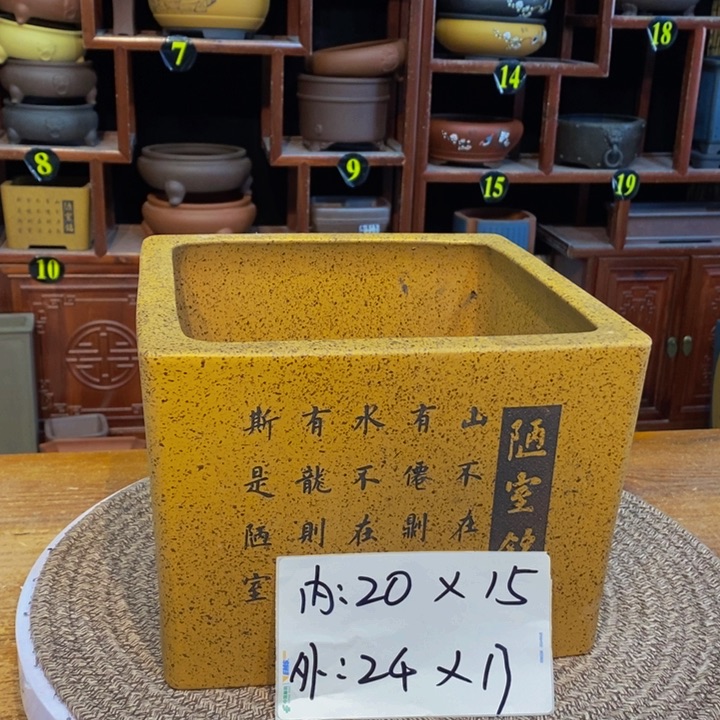 7
18
14
8
9
15
19
10
陋室銘
山不在
有僊則
水不在
有龍則
斯是陋室
内:20×15
外:24×17